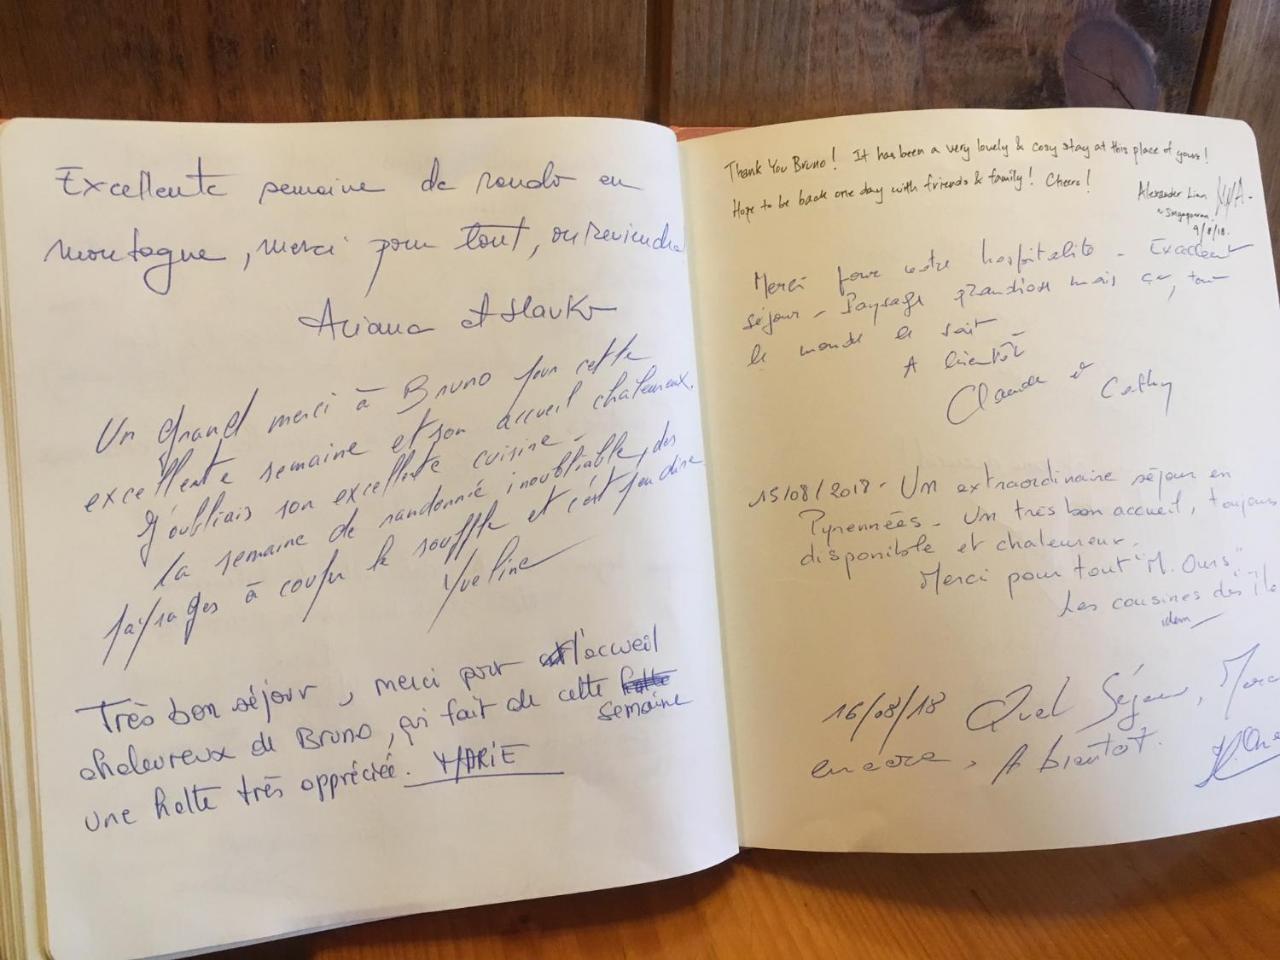 Excellente semaine de rando en
montagne, merci pour tout, on reviendra
Ariana et Slavko
Un grand merci à Bruno pour cette
excellente semaine et son accueil chaleureux.
J'oubliais son excellente cuisine -
La semaine de randonnée inoubliable, des
paysages à couper le souffle et c'est peu dire
Yveline
Très bon séjour, merci pour l'accueil
chaleureux de Bruno, qui fait de cette
semaine
une halte très appréciée. MARIE
Thank You Bruno! It has been a very lovely & cosy stay at this place of yours!
Hope to be back one day with friends & family! Cheers!
Alexander Lian
Singaporean
9/8/18.
Merci pour votre hospitalité - Excellent
séjour - Paysage grandiose mais ça, tout
le monde le sait -
A bientôt
Claude et Cathy
15/08/2018 - Un extraordinaire séjour en
Pyrennées - Un très bon accueil, toujours
disponible et chaleureux.
Merci pour tout "M. Ours".
Les cousines des île
16/08/18 Quel Séjour, Merci
encore, A bientôt.